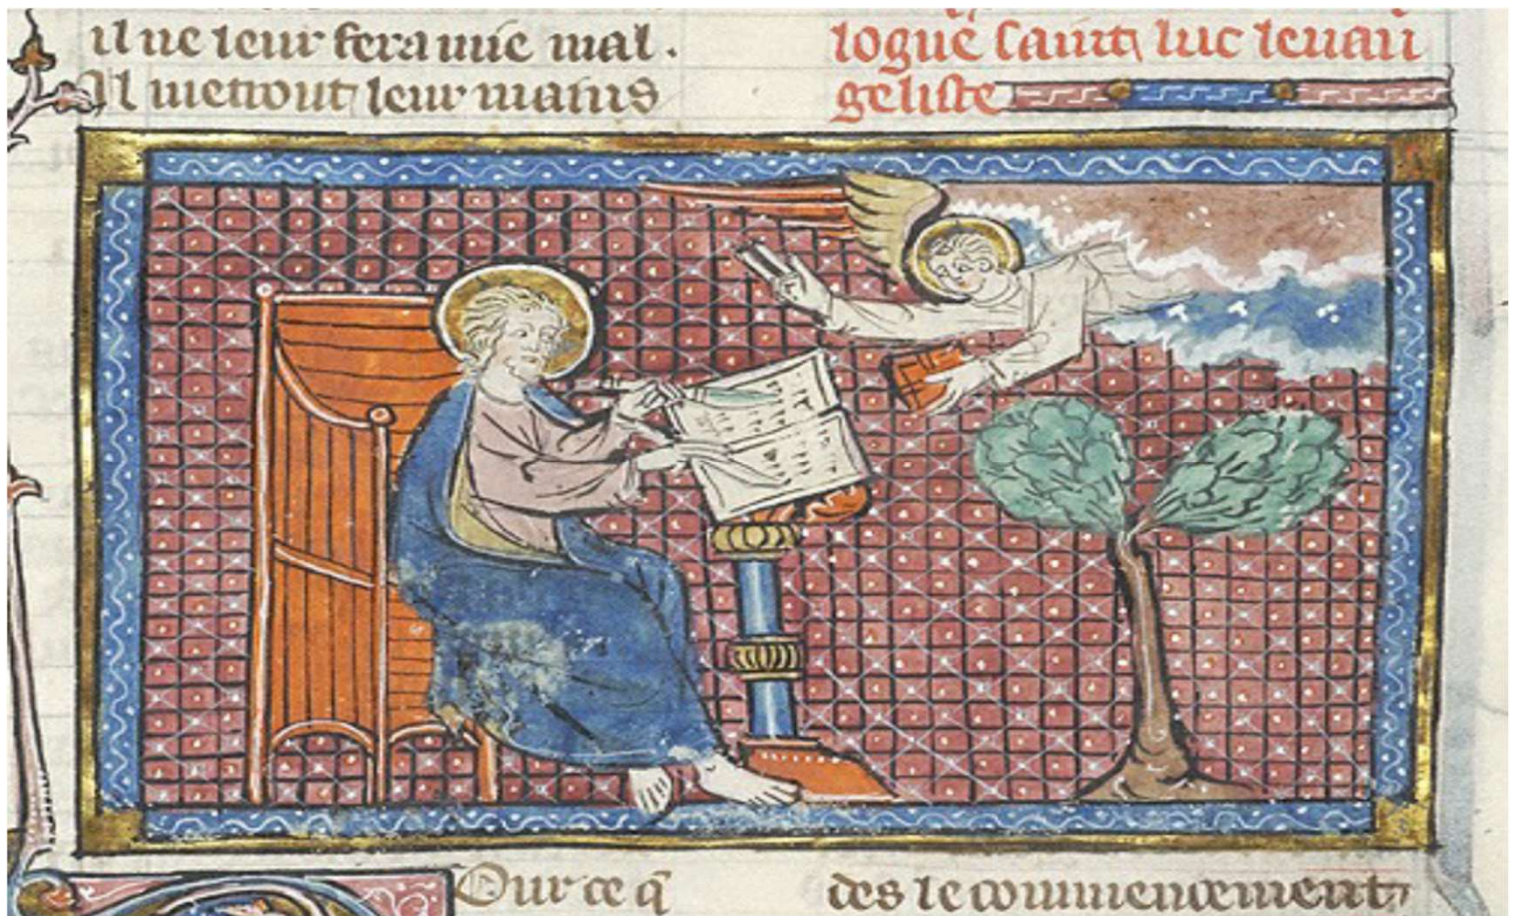 il ne leur fera mie mal .
Il metront leur mains
Our ce q̃
logue saint luc leuan
geliste
des le commencement